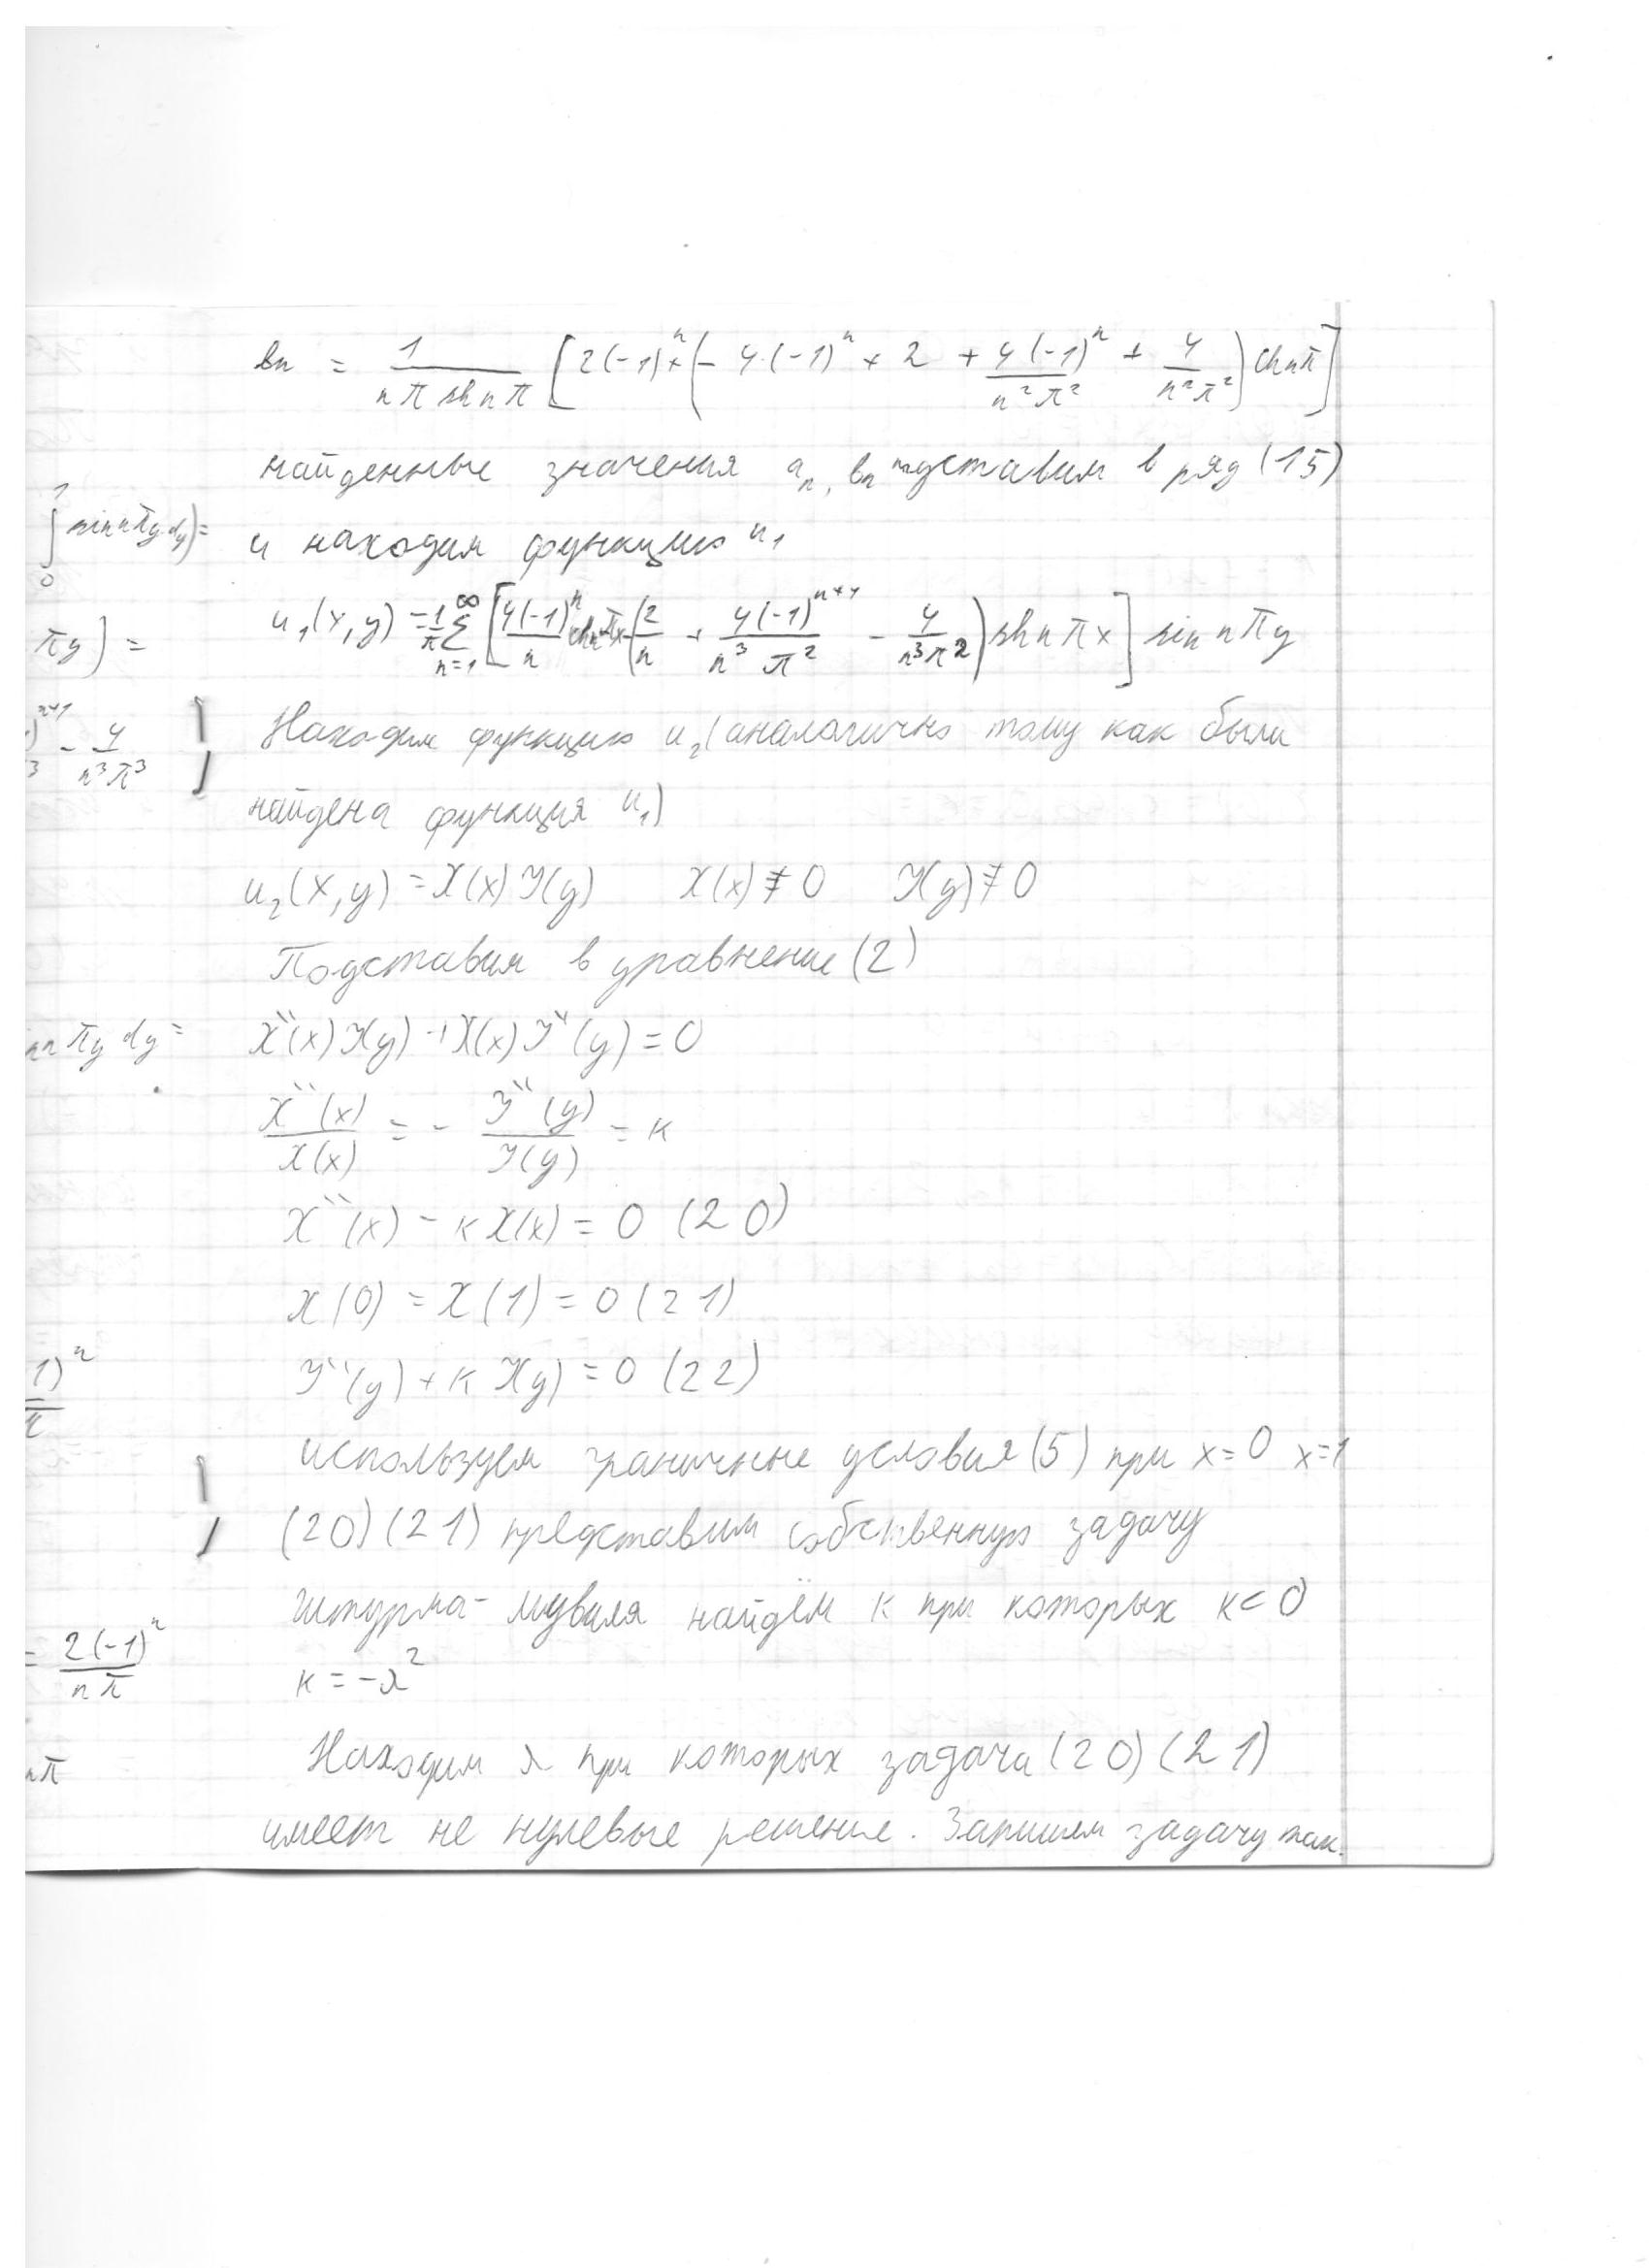 bn = 1/(nπ sh nπ) [2(-1)^n + (- 4·(-1)^n + 2 + 4(-1)^n/(n²π²) + 4/(n²π²)) ch nπ]
найденные значения a_n, b_n подставим в ряд (15)
∫₀¹ sin nπy dy) =
и находим функцию u₁
πy) =
u₁(x,y) = 1/π Σ_{n=1}^∞ [4(-1)^n/n ch nπx (2/n + 4(-1)^{n+1}/(n³π²) - 4/(n³π²)) sh nπx] sin nπy
- 4/(n³π³)
Находим функцию u₂ (аналогично тому как были
найдена функция u₁)
u₂(x,y) = X(x) Y(y) X(x) ≢ 0 Y(y) ≢ 0
Подставим в уравнение (2)
πy dy =
X''(x) Y(y) + X(x) Y''(y) = 0
X''(x)/X(x) = - Y''(y)/Y(y) = к
X''(x) - к X(x) = 0 (20)
X(0) = X(1) = 0 (21)
1)^n
Y''(y) + к Y(y) = 0 (22)
используем граничные условия (5) при x=0 x=1
(20) (21) представим собственную задачу
Штурма-Лиувиля найдём к при которых к<0
= 2(-1)^n/(nπ)
к = -λ²
Находим λ при которых задача (20) (21)
nπ
имеет не нулевые решение. Запишем задачу так.